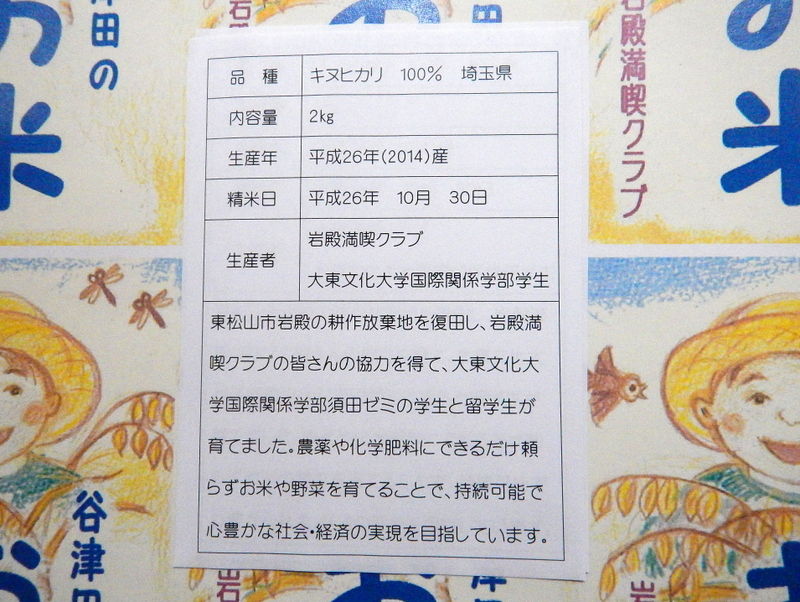 津田の
岩殿満喫クラブ
お
米
品種 キヌヒカリ 100% 埼玉県
内容量 2kg
生産年 平成26年(2014)産
精米日 平成26年 10月 30日
生産者 岩殿満喫クラブ
大東文化大学国際関係学部学生
東松山市岩殿の耕作放棄地を復田し、岩殿満
喫クラブの皆さんの協力を得て、大東文化大
学国際関係学部須田ゼミの学生と留学生が
育てました。農薬や化学肥料にできるだけ頼
らずお米や野菜を育てることで、持続可能で
心豊かな社会・経済の実現を目指しています。
谷津田